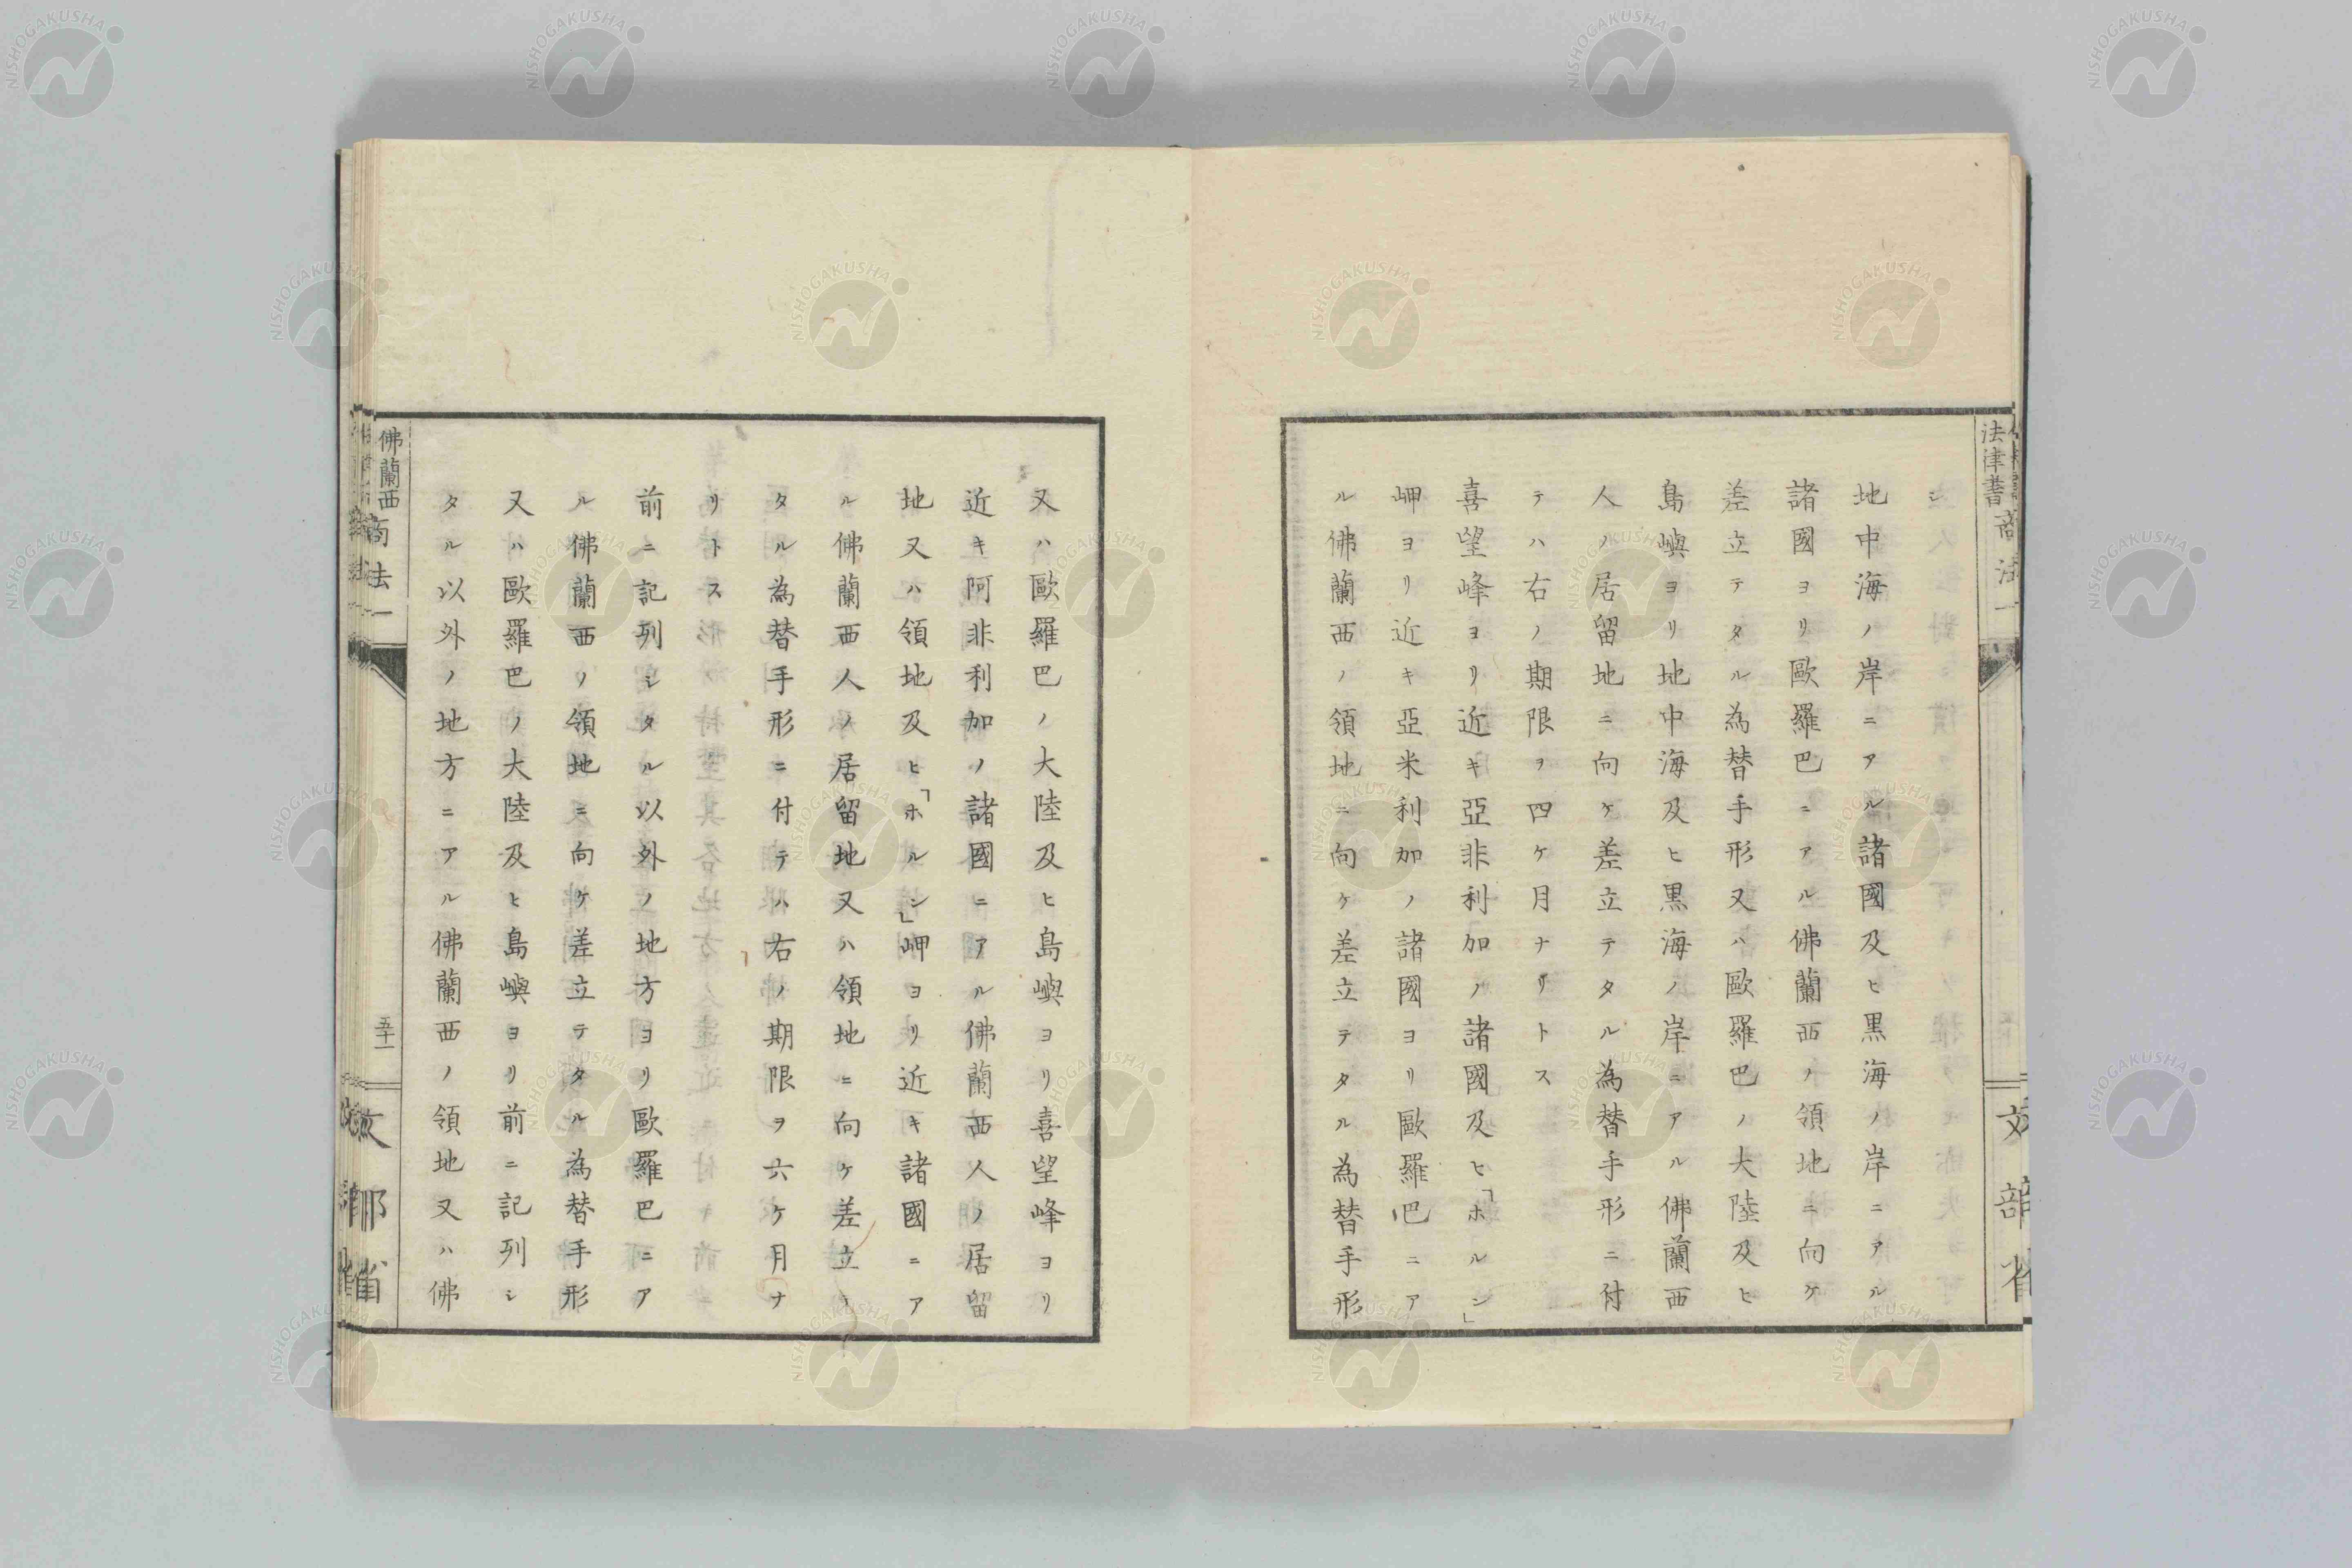 法律書 商法 一
文部省
シ
地中海ノ岸ニアル諸國及ヒ黒海ノ岸ニアル
諸國ヨリ歐羅巴ニアル佛蘭西ノ領地ニ向ケ
差立テタル為替手形又ハ歐羅巴ノ大陸及ヒ
島嶼ヨリ地中海及ヒ黒海ノ岸ニアル佛蘭西
人ノ居留地ニ向ケ差立テタル為替手形ニ付
テハ右ノ期限ヲ四ケ月ナリトス
喜望峰ヨリ近キ亞非利加ノ諸國及ヒ「ホルン」
岬ヨリ近キ亞米利加ノ諸國ヨリ歐羅巴ニア
ル佛蘭西ノ領地ニ向ケ差立テタル為替手形
又ハ歐羅巴ノ大陸及ヒ島嶼ヨリ喜望峰ヨリ
近キ阿非利加ノ諸國ニアル佛蘭西人ノ居留
地又ハ領地及ヒ「ホルン」岬ヨリ近キ諸國ニア
ル佛蘭西人ノ居留地又ハ領地ニ向ケ差立テ
タル為替手形ニ付テハ右ノ期限ヲ六ケ月ナ
リトス
前ニ記列シタル以外ノ地方ヨリ歐羅巴ニア
ル佛蘭西ノ領地ニ向ケ差立テタル為替手形
又ハ歐羅巴ノ大陸及ヒ島嶼ヨリ前ニ記列シ
タル以外ノ地方ニアル佛蘭西ノ領地又ハ佛
佛蘭西 商法 一
五十一
文部省
NISHOGAKUSHA